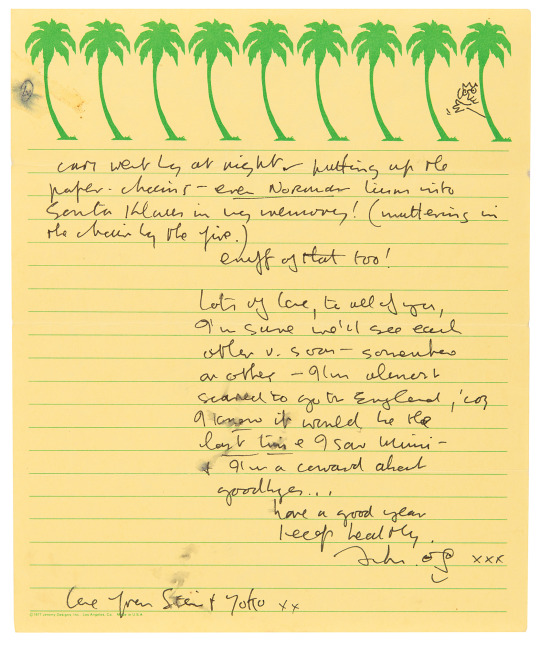 cars went by at night & putting up the
paper-chains - even Norman turns into
Santa Klaus in my memory! (muttering in
the chair by the fire.)
enuff of that too!
Lots of love, to all of you,
I'm sure we'll see each
other v. soon - somewhere
or other - I'm almost
scared to go to England, 'cos
I know it would be the
last time I saw Mimi -
& I'm a coward about
goodbyes...
have a good year
keep healthy.
John. xxx
love from Sean & Yoko xx
©1977 Los Angeles, Ca. Made in U.S.A.